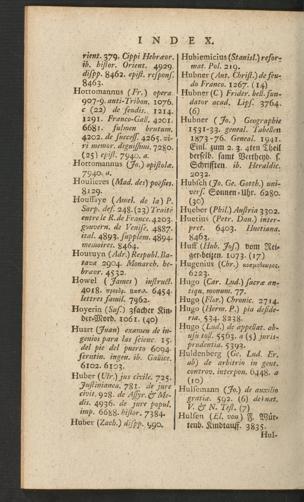 INDEX.
rient. 379. Cippi Hebræor.
ib. histor. Orient. 4929.
dispp. 8462. epist. respons.
8463.
Hottomannus (Fr.) opera
907-9. anti-Tribon. 1076.
c (22) de feudis. 1214.
1291. Franco-Gall. 4201.
6681. fulmen brutum.
4202. de success. 4265. vi-
ri memor. digniss. 7280.
(25) epist. 7940. a.
Hottomannus (Jo.) epistolæ.
7940. a.
Houlieres (Mad. des) poësies.
8129.
Houssaye (Amel. de la) P.
Sarp. def. 248. (23) Traités
entre le R. de France. 4203.
gouvern. de Venise. 4887.
ital. 4893. supplem. 4894.
memoires. 8464.
Houtuyn (Adr.) Respubl. Ba-
tava 2904. Monarch. he-
bræor. 4532.
Howel (James) instruct.
4018. 6454
lettres famil. 7962.
Hoyerin (Sus.) 3facher Kin-
der-Mord. 1061. (40)
Huart (Juan) examen de in-
genios para las scienc. 15.
del pie del puerto 6094
scrutin. ingen. ib. Guelin.
6102. 6103.
Huber (Ulr.) jus civile. 725.
Justinianea. 781. de jure
civit. 928. de Assyr. & Me-
dis. 4936. de jure popul.
imp. 6688. histor. 7384.
Huber (Zach.) dispp. 990.
Hubiemicius (Stanisl.) refor-
mat. Pol. 219.
Hubner (Ant. Christ.) de feu-
do Franco. 1267. (14)
Hubner (C) Frider. bell. fun-
dator acad. Lips. 3764.
(6)
Hubner (Jo.) Geographie
1531-33. geneal. Tabellen
1873-76. Geneal. 1941.
Einl. zum 2. 3. 4ten Theil
derselb. samt Berthens. s.
Schrifften. ib. Heraldic.
2032.
Hubsch (Jo. Ge. Gotth.) uni-
vers. Sonnen-Uhr. 6280.
(30)
Hueber (Phil.) Austria 3302.
Huetius (Petr. Dan) inter-
pret. 6403. Huetiana.
8463.
Huff (Hub. Jos.) vom Rei-
ger-beizen. 1073. (17)
Hugenius (Chr.)
6223.
Hugo (Car. Lud.) sacræ an-
tiqu. monum. 77.
Hugo (Flor.) Chronic. 2714.
Hugo (Herm. P.) pia deside-
ria. 534. 8238.
Hugo (Lud.) de appellat. ab-
usu tost. 5563. a (5) juris-
prudentia. 5393.
Huldenberg (Ge. Lud. Er.
ab) de arbitrio in gent.
controv. interpon. 0448. a
(10)
Hulsemann (Jo.) de auxilio
gratiæ. 592. (6) de nat.
V. & N. Test. (7)
Hulsen (El. von) F. Wür-
tenb. Kindtauff. 3835.
Hul-